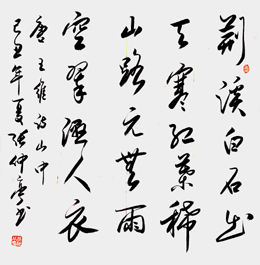 荆溪白石出
天寒红叶稀
山路元無雨
空翠湿人衣
唐王維诗山中
己丑年夏张仲亭书